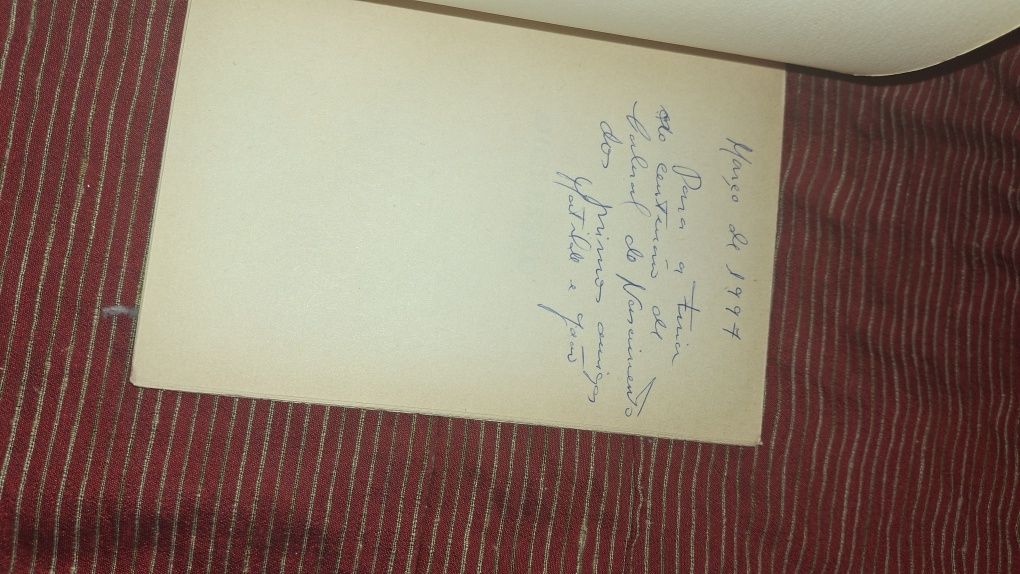 Março de 1997
Para a Tina
do centenário de
Cabral do Nascimento
dos primos amigos
Matilde e João